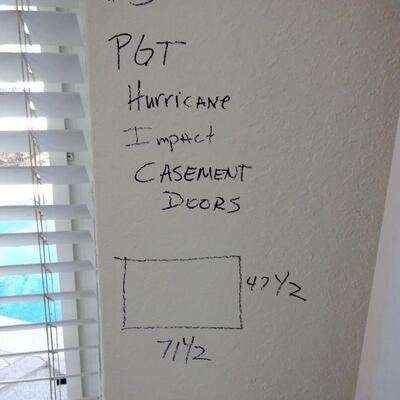 PGT
Hurricane
Impact
CASEMENT
DOORS
47 1/2
71 1/2